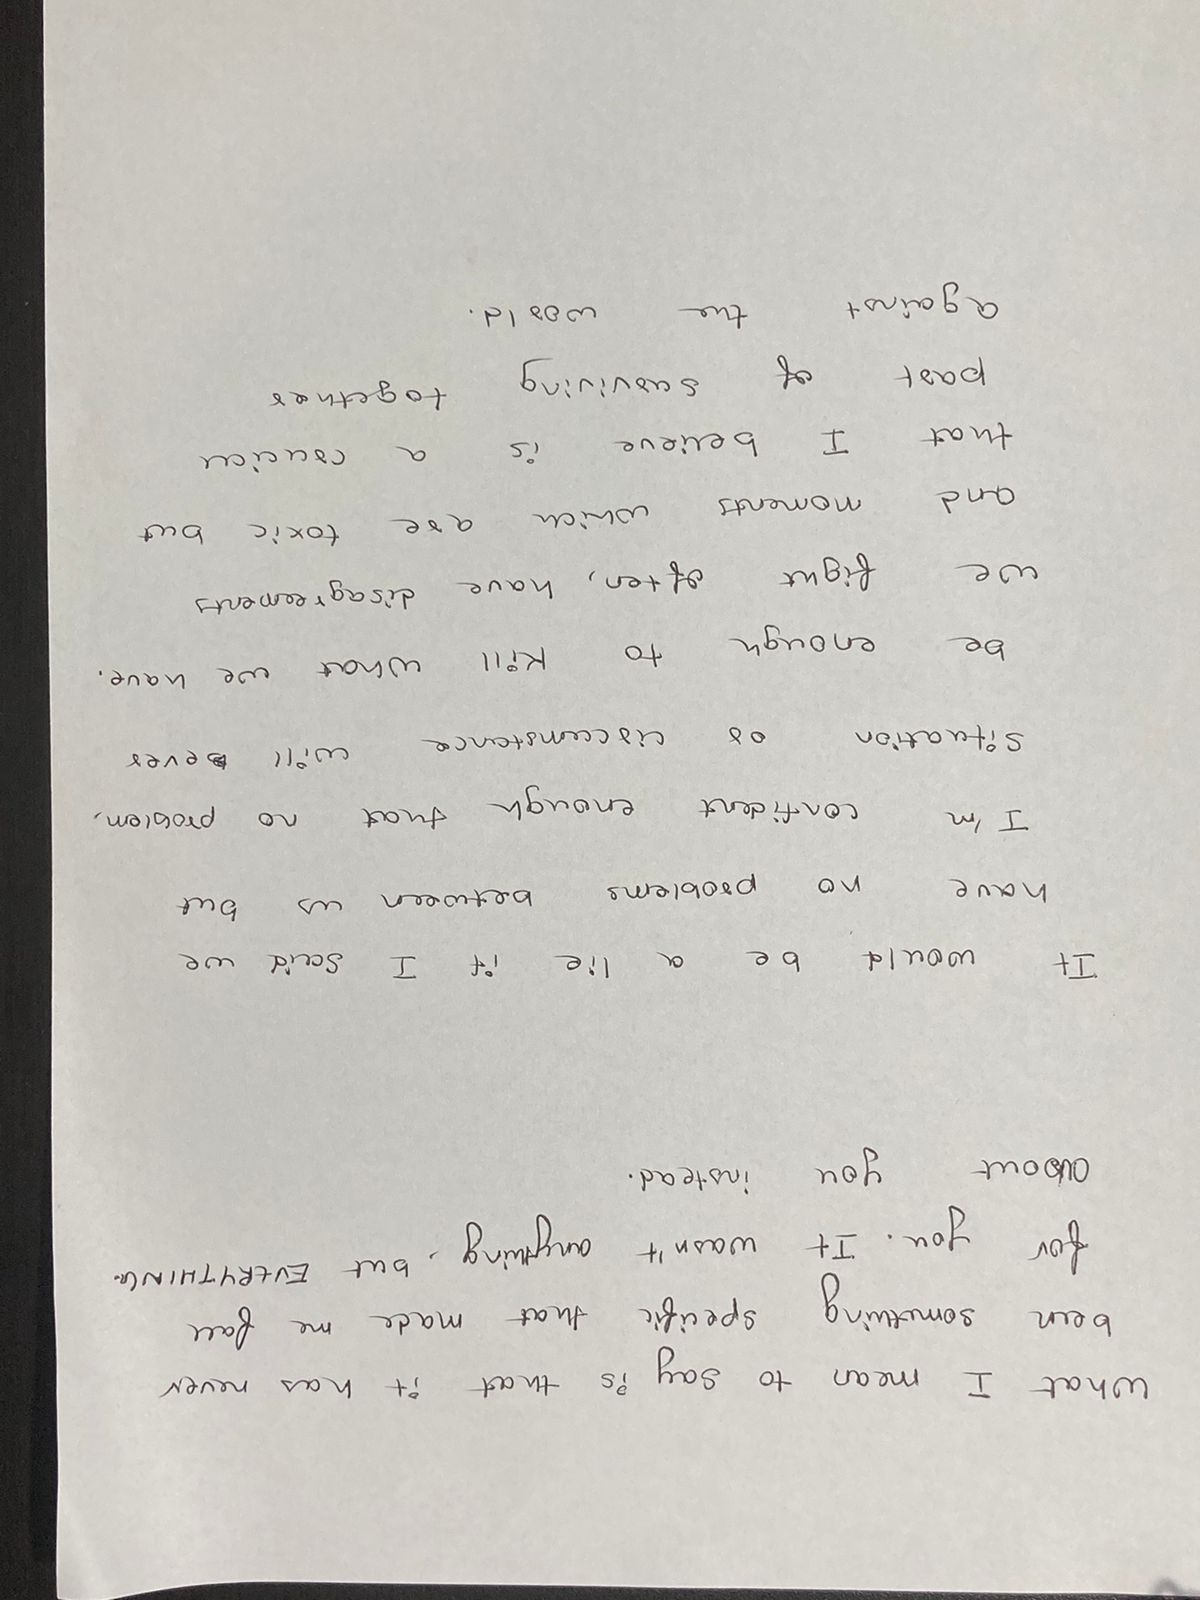 What I mean to say is that it has never
been something specific that made me fall
for you. It wasn't anything, but EVERYTHING
about you instead.
It would be a lie if I said we
have no problems between us but
I'm confident enough that no problem,
situation or circumstance will ever
be enough to kill what we have.
we fight often, have disagreements
and moments which are toxic but
that I believe is a crucial
part of surviving together
against the world.